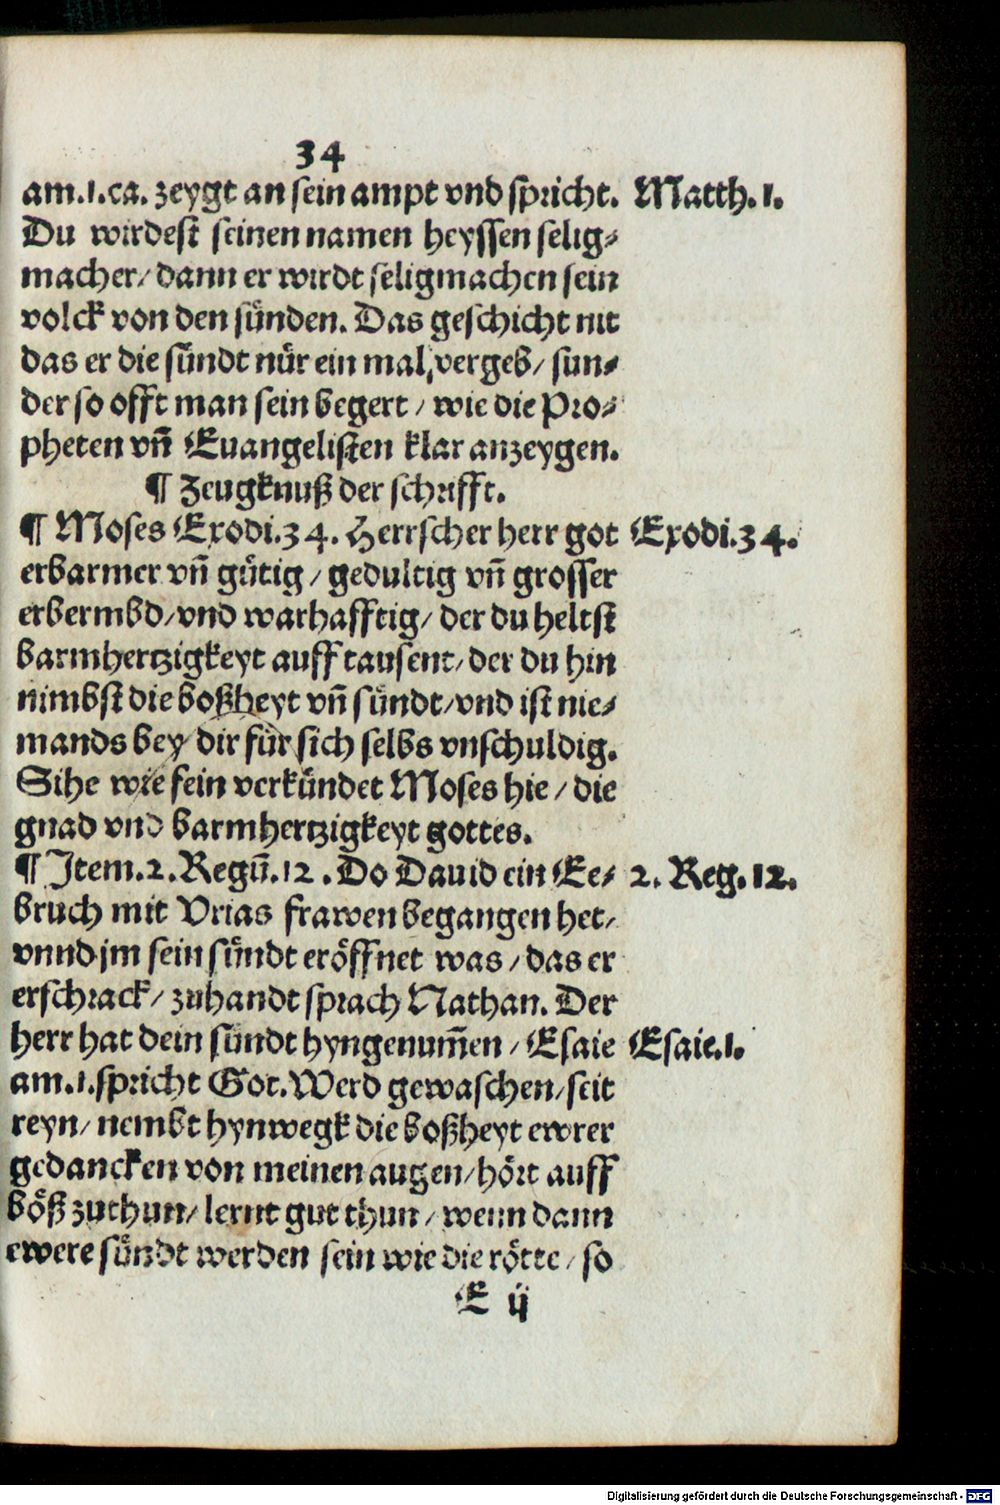 34
am.1.ca. zeygt an sein ampt vnd spricht. Matth. 1.
Du wirdest seinen namen heyssen selig⸗
macher/ dann er wirdt seligmachen sein
volck von den sünden. Das geschicht nit
das er die sündt nür ein mal, vergeb/ sun⸗
der so offt man sein begert / wie die Pro⸗
pheten vñ Euangelisten klar anzeygen.
¶ Zeugknuß der schrifft.
¶ Moses Exodi.34. Herrscher herr got Exodi.34.
erbarmer vñ gütig / gedultig vñ grosser
erbermbd/ vnd warhafftig/ der du heltst
barmhertzigkeyt auff tausent/ der du hin
nimbst die boßheyt vñ sündt/ vnd ist nie⸗
mands bey dir für sich selbs vnschuldig.
Sihe wie fein verkündet Moses hie / die
gnad vnd barmhertzigkeyt gottes.
¶ Item.2.Regũ.12. Do Dauid ein Ee⸗ 2. Reg. 12.
bruch mit Vrias frawen begangen het/
vnnd jm sein sündt eröffnet was / das er
erschrack/ zuhandt sprach Nathan. Der
herr hat dein sündt hyngenum̃en / Esaie Esaie.1.
am.1.spricht Got. Werd gewaschen/ seit
reyn/ nembt hynwegk die boßheyt ewrer
gedancken von meinen augen/ hört auff
böß zuthun/ lernt gut thun / wenn dann
ewere sündt werden sein wie die rötte / so
E ij
Digitalisierung gefördert durch die Deutsche Forschungsgemeinschaft - DFG